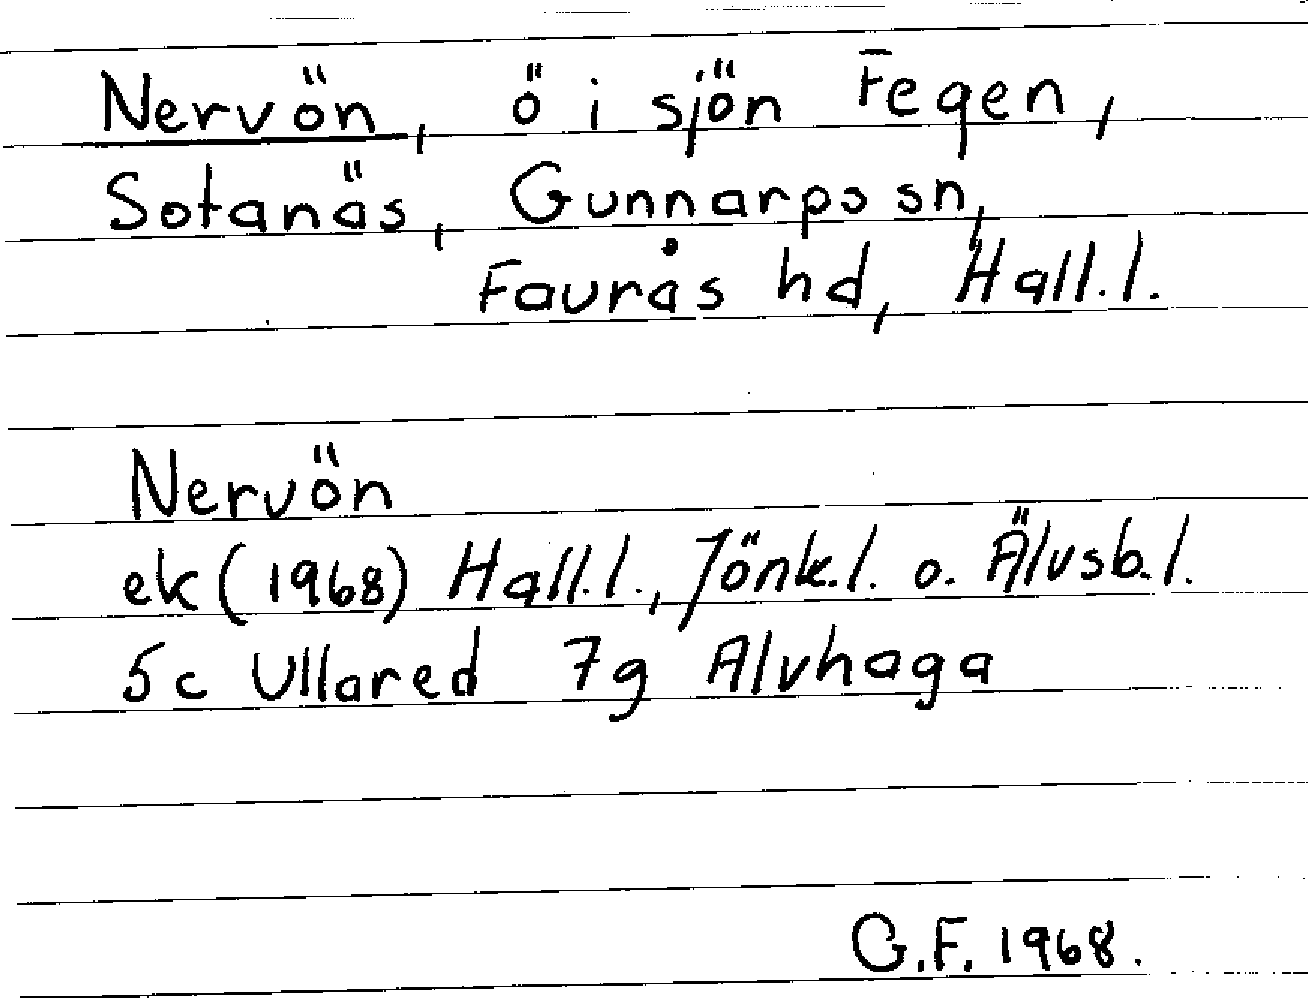 Nervön, ö i sjön Fegen,
Sotanäs, Gunnarps sn,
Faurås hd, Hall.l.
Nervön
ek (1968) Hall.l., Jönk.l. o. Älvsb.l.
5c Ullared 7g Alvhaga
G.F. 1968.